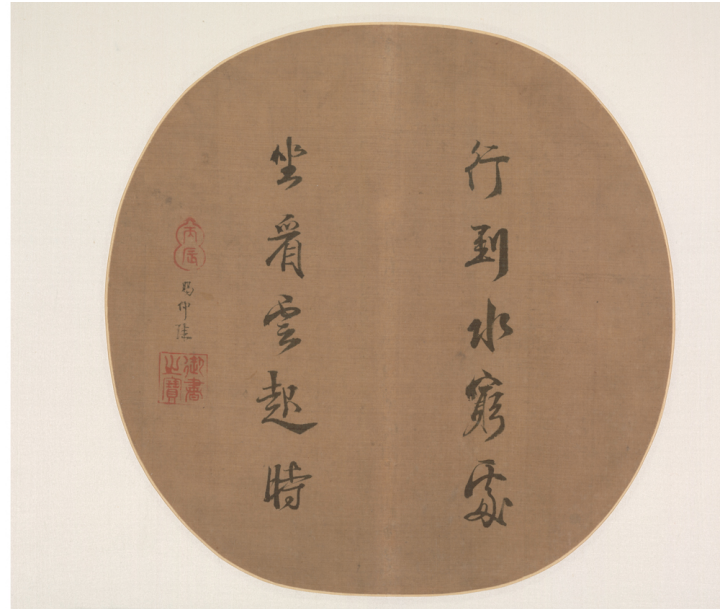 行到水窮處
坐看雲起時
丙辰
賜仲陳
御書之寶